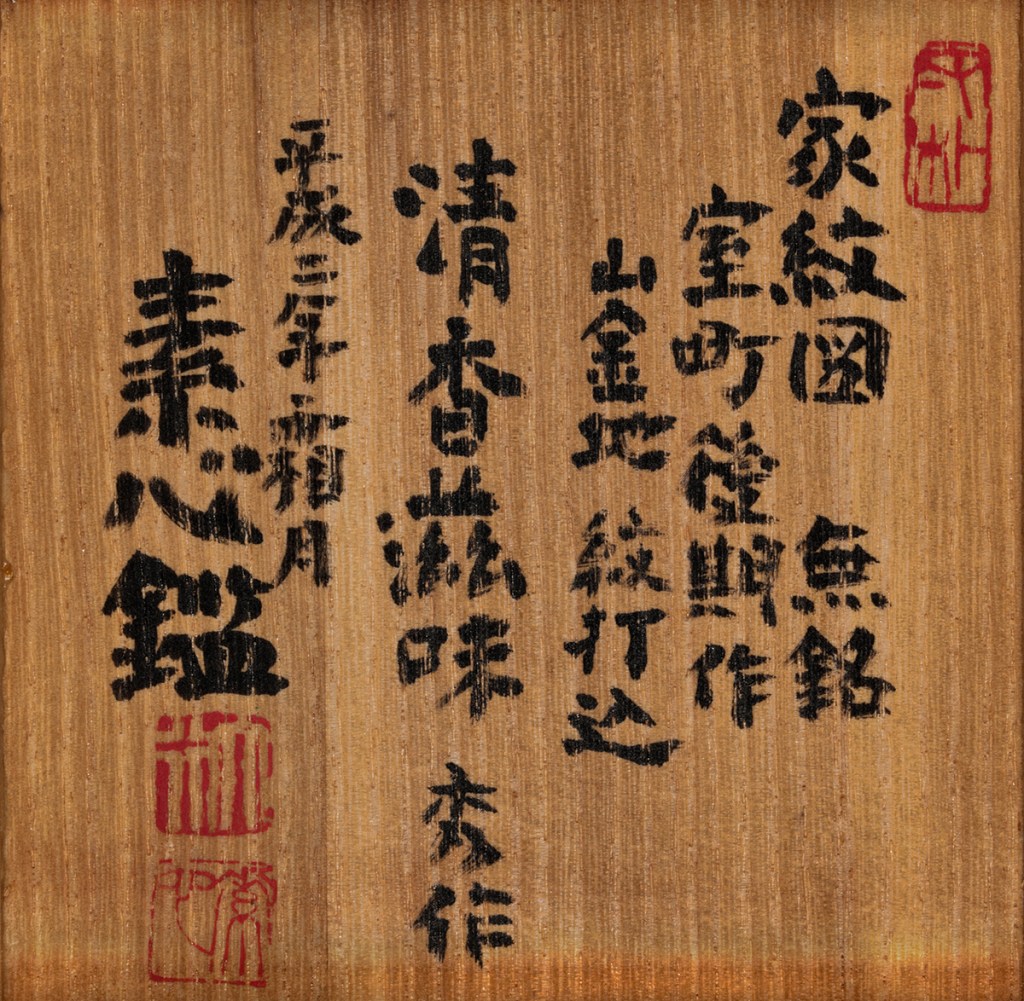 家紋図 無銘
室町後期作
山金地 紋打込
清香滋味 秀作
平成二年 霜月
素心鑑